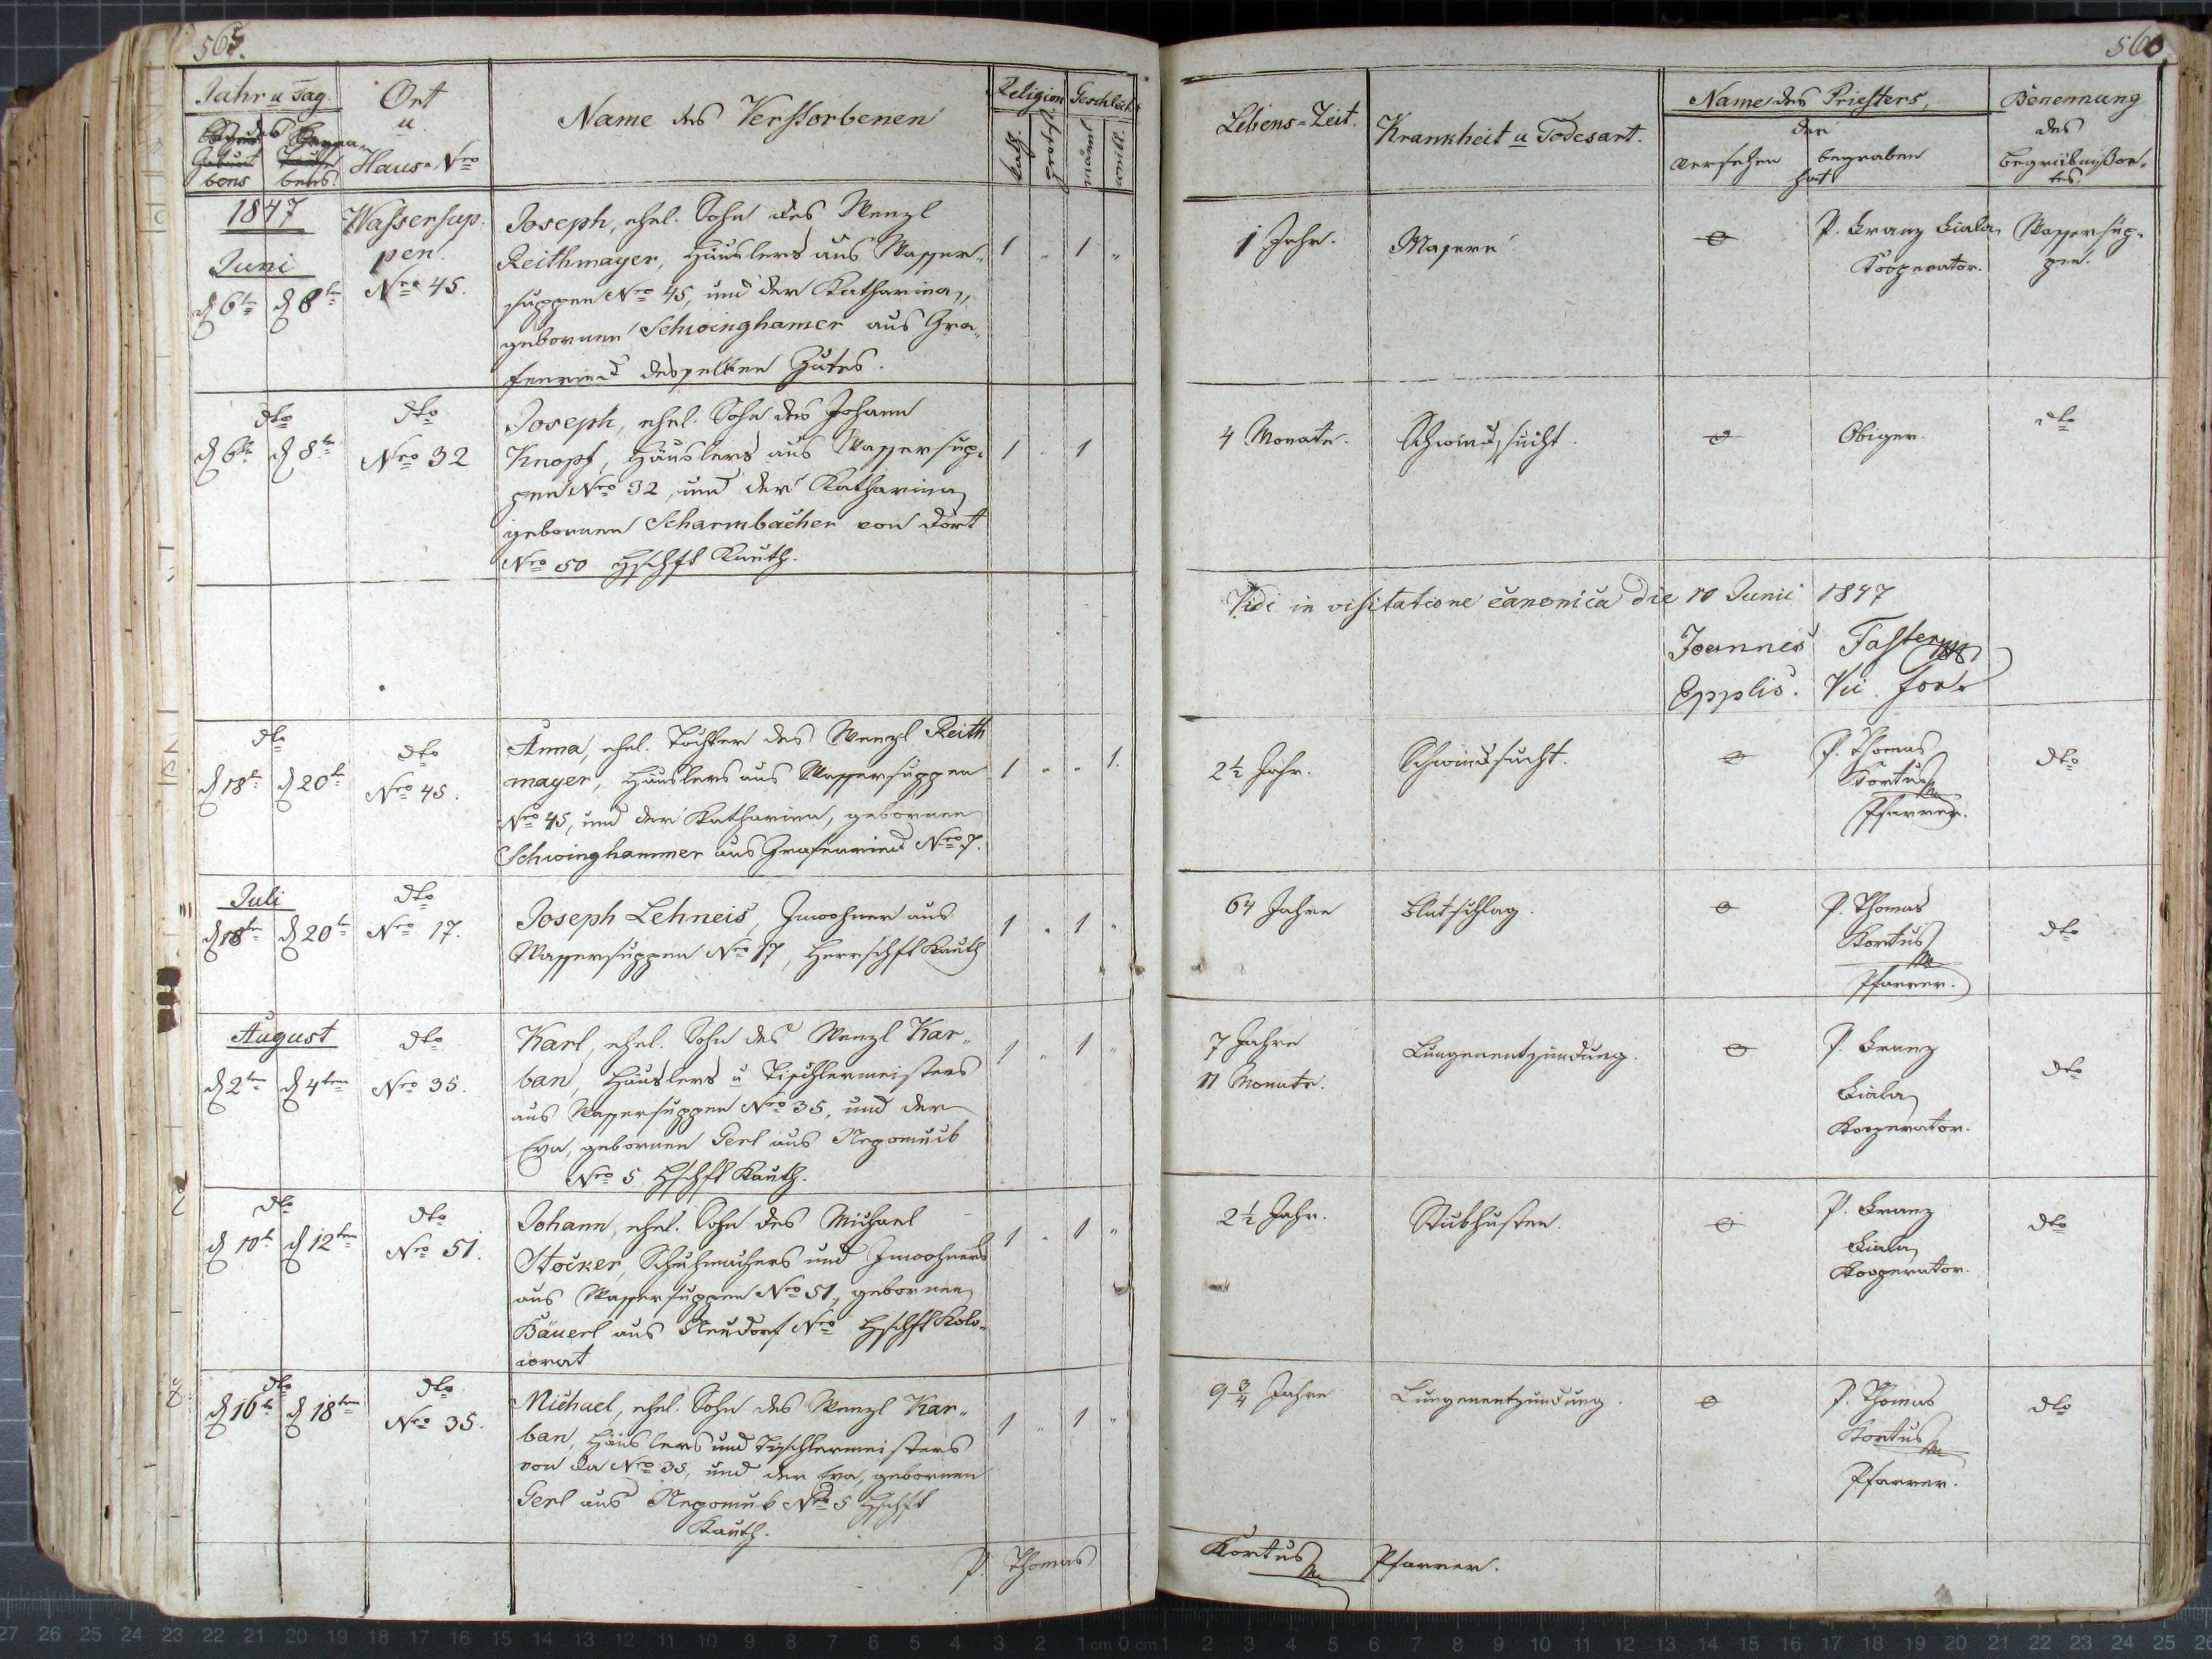 565.
Jahr u Tag
des
Geburt
bens
bens
Ort
u
Haus-Nro
Name des Verstorbenen
Religion
kath.
protest.
Geschlecht
männl
weibl.
1847
Juni
d 6tn d 8tn
Wassersup-
pen
Nro 45.
Joseph, ehel. Sohn des Wenzl
Reithmayer, Häuslers aus Wasser-
suppen Nro 45, und der Katharina,
gebornen Schwinghamer aus Gra-
fenried desselben Gutes.
1 " 1 "
dto
d 6tn d 8tn
dto
Nro 32
Joseph, ehel. Sohn des Johann
Knopf, Häuslers aus Wassersup-
pen Nro 32, und der Katharina
gebornen Scharmbacher von dort
Nro 50 Hschft Kauth.
1 " 1
dto
d 18tn d 20tn
dto
Nro 45.
Anna, ehel. Tochter des Wenzl Reith
mayer, Häuslers aus Wassersuppen
Nro 45, und der Katharina, gebornen
Schwinghammer aus Grafenried Nro 7.
1 " " 1.
Juli
d 18tn d 20tn
dto
Nro 17.
Joseph Lehneis, Inwohner aus
Wassersuppen Nro 17, Herrschft Kauth
1 " 1 "
August
d 2ten d 4ten
dto
Nro 35.
Karl, ehel. Sohn des Wenzl Kar-
ban, Häuslers u Tischlermeisters
aus Wassersuppen Nro 35, und der
Eva, gebornen Gerl aus Nepomuck
Nro 5 Hschft Kauth.
1 " 1 "
dto
d 10tn d 12ten
dto
Nro 51.
Johann, ehel. Sohn des Michael
Stöcker, Schuhmachers und Inwohners
aus Wassersuppen Nro 51, gebornen
Bäuerl aus Neudorf Nro Hschft Kolo-
wrat
1 " 1 "
dto
d 16tn d 18ten
dto
Nro 35.
Michael, ehel. Sohn des Wenzl Kar-
ban, Häuslers und Tischlermeisters
von da Nro 35, und der Eva, gebornen
Gerl aus Nepomuk Nro 5 Hschft
Kauth.
1 " 1 "
P. Thomas
566.
Lebens-Zeit.
Krankheit u Todesart.
Name des Priesters,
der
versehen
begraben
hat
Benennung
des
Begräbnißor-
tes.
1 Jahr.
Masern
P. Franz Fiala
Kooperator.
Wassersup-
pen.
4 Monate.
Schwindsucht.
Obiger.
dto
Vidi in visitatione canonica die 10 Junii 1847
Joannes
Epplis. Vic. for.
2½ Jahr.
Schwindsucht.
P. Thomas
Kortus
Pfarrer.
dto
64 Jahre
Blutschlag.
P. Thomas
Kortus
Pfarrer.
dto
7 Jahre
11 Monate.
Lungenentzündung.
P. Franz
Fiala
Kooperator.
dto
2½ Jahr.
Stickhusten.
P. Franz
Fiala
Kooperator.
dto
9¾ Jahre
Lungenentzündung.
P. Thomas
Kortus
Pfarrer.
dto
Kortus Pfarrer.
27 26 25 24 23 22 21 20 19 18 17 16 15 14 13 12 11 10 9 8 7 6 5 4 3 2 1 cm 0 cm 1 2 3 4 5 6 7 8 9 10 11 12 13 14 15 16 17 18 19 20 21 22 23 24 25 26